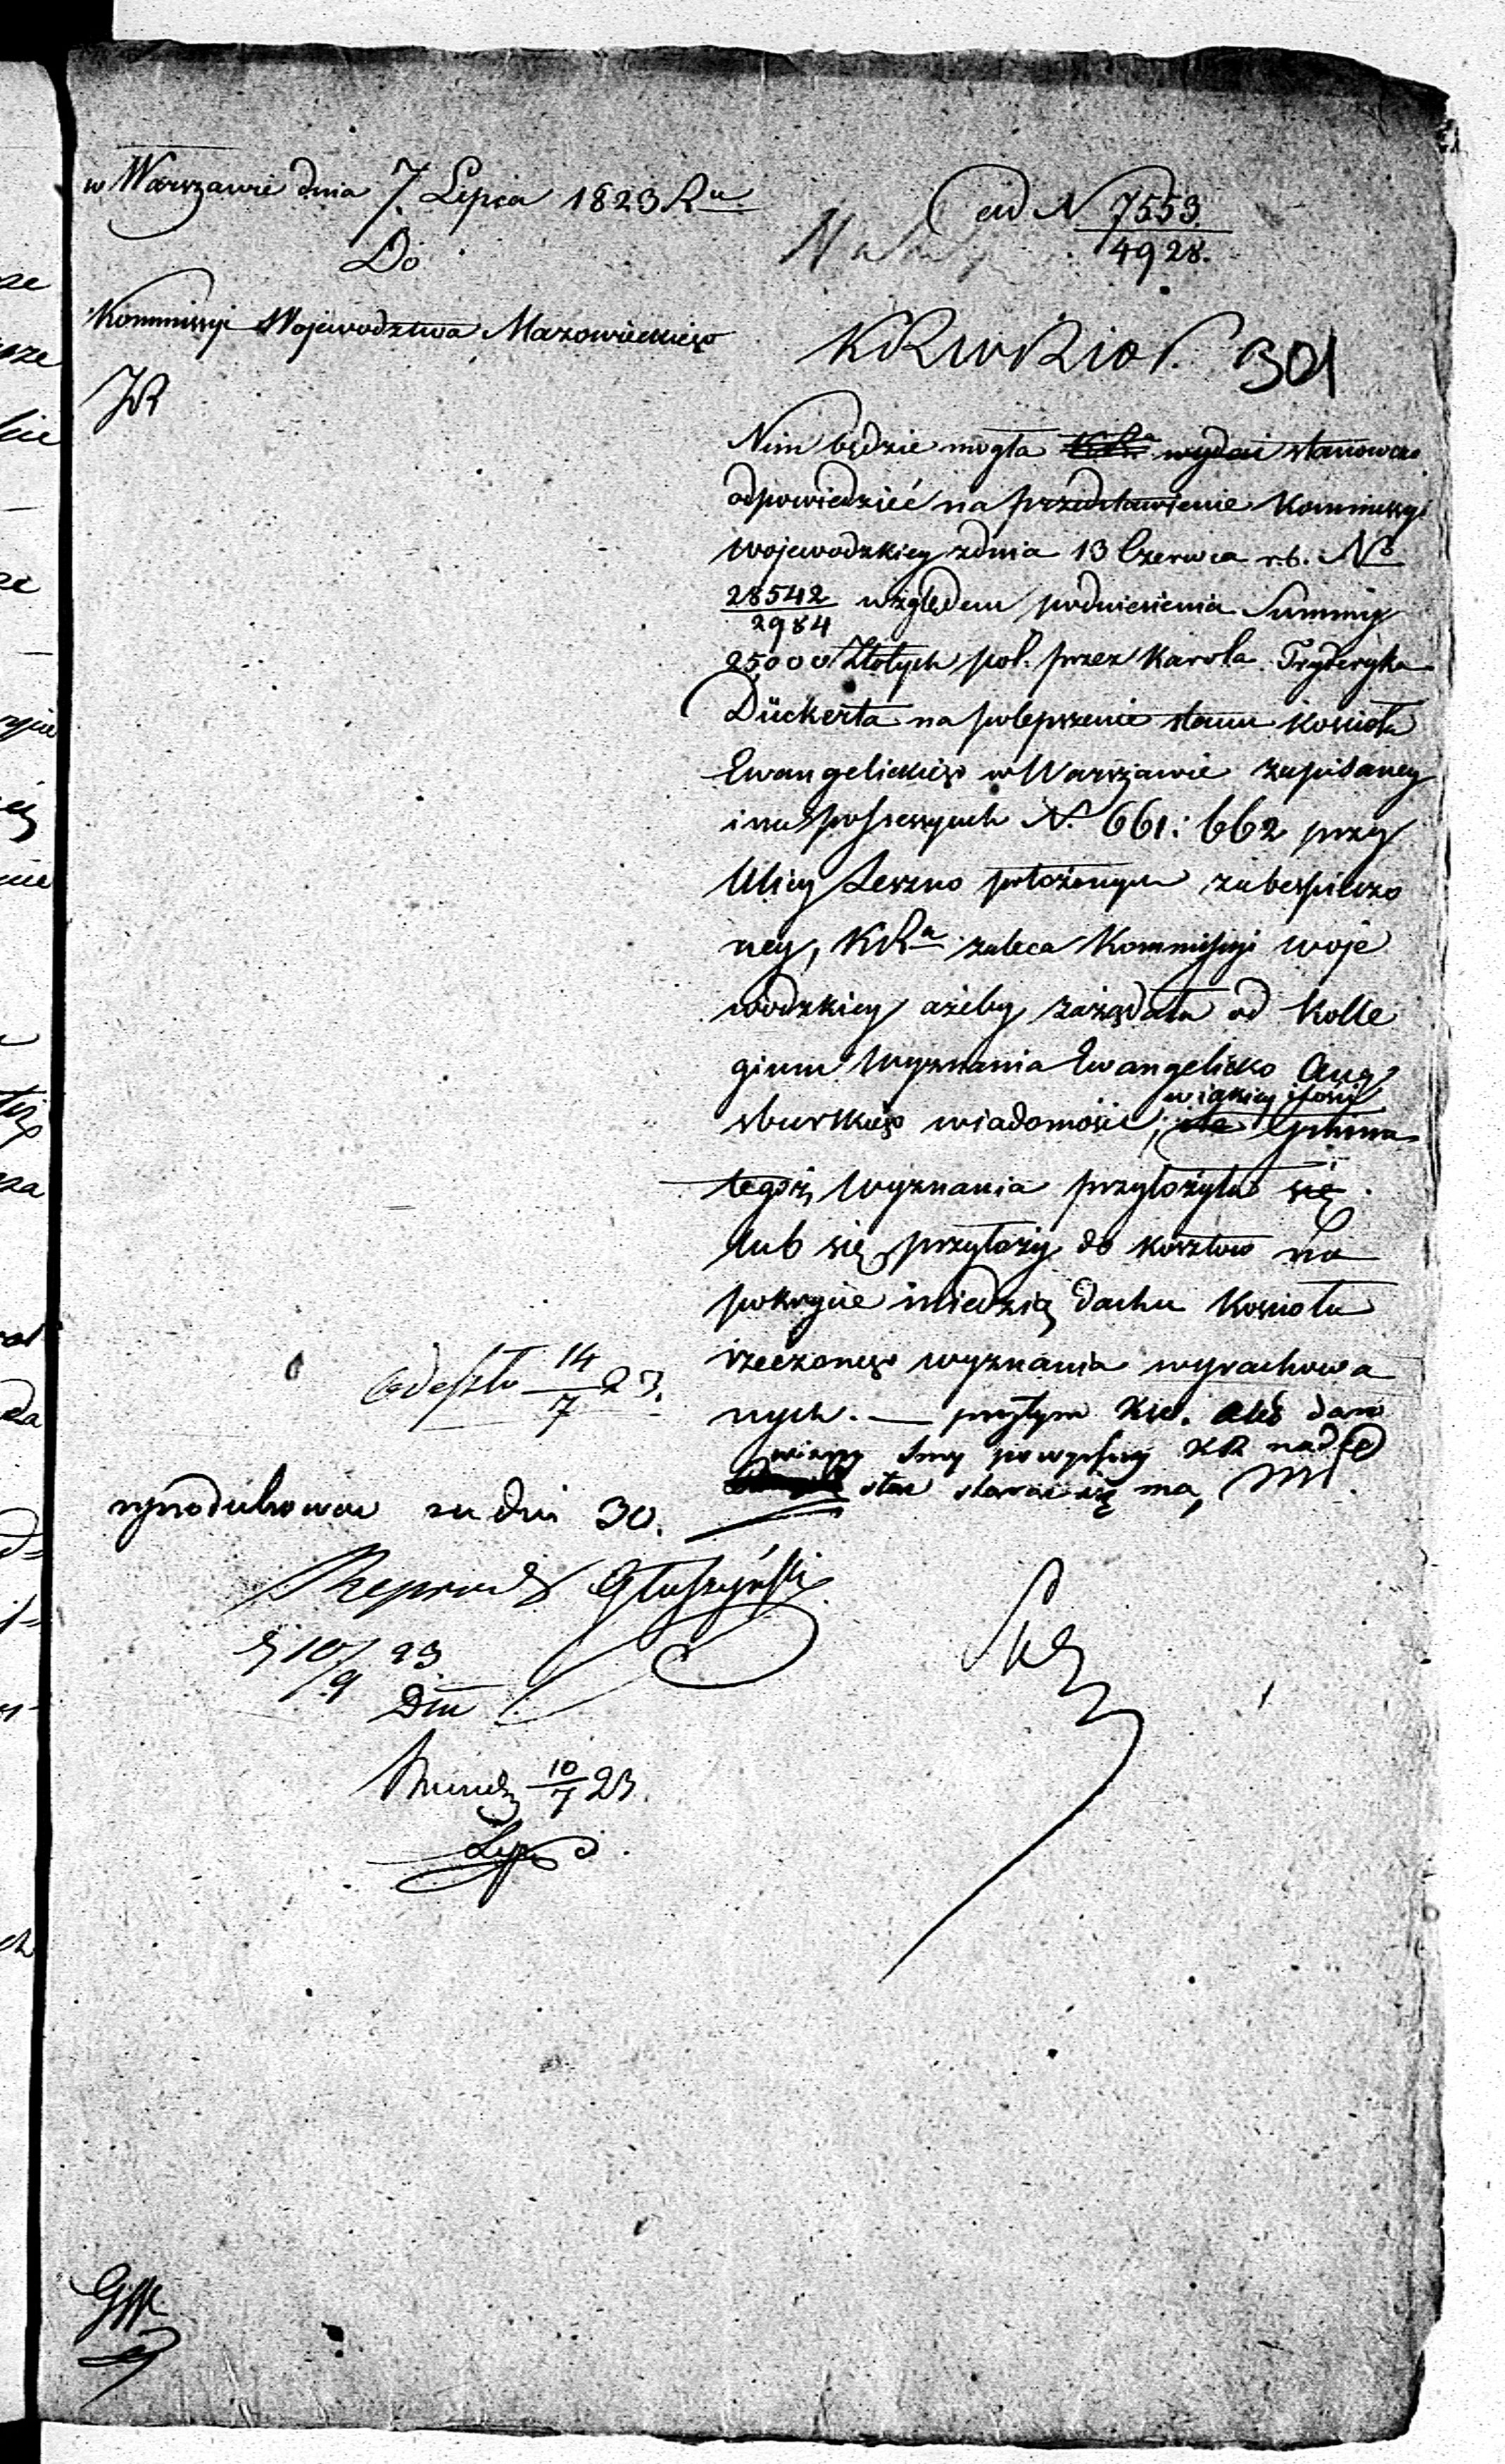 w Warszawie dnia 7. Lipca 1823 Ru
ad N 7553.
4928.
Do
Kommissyi Województwa Mazowieckiego
KRWRiOP. 301
Nim będzie mogła KRa wydać stanowczo
odpowiedzieć na przedstawienie Kommissyi
Wojewodzkiey z dnia 13 Czerwca r.b. No
28542
2984 względem podniesienia Summy
25,000 Złotych pol. przez Karola Fryderyka
Dückerta na polepszenie stanu kościoła
Ewangelickiego w Warszawie zapisaney
i na possessyach No 661: 662 przy
Ulicy Leszno położonych zabespieczo
ney, KRa zaleca Kommissyi woje
wodzkiey ażeby zażądała od Kolle
gium Wyznania Ewangelicko Aug
w iakiey ilości
sburskiego wiadomości, ile Gmina
tegoż Wyznania przyłożyła się
lub się przyłoży do kosztow na
pokrycie miedzią dachu Kościoła
rzeczonego wyznania wyrachowa
nych. — przytym
stan starać się ma,
Odeszło 14/7 23.
reprodukować za dni 30.
Reprod Głuszyński
10/9 23
Dm
Mund 10/7 23.